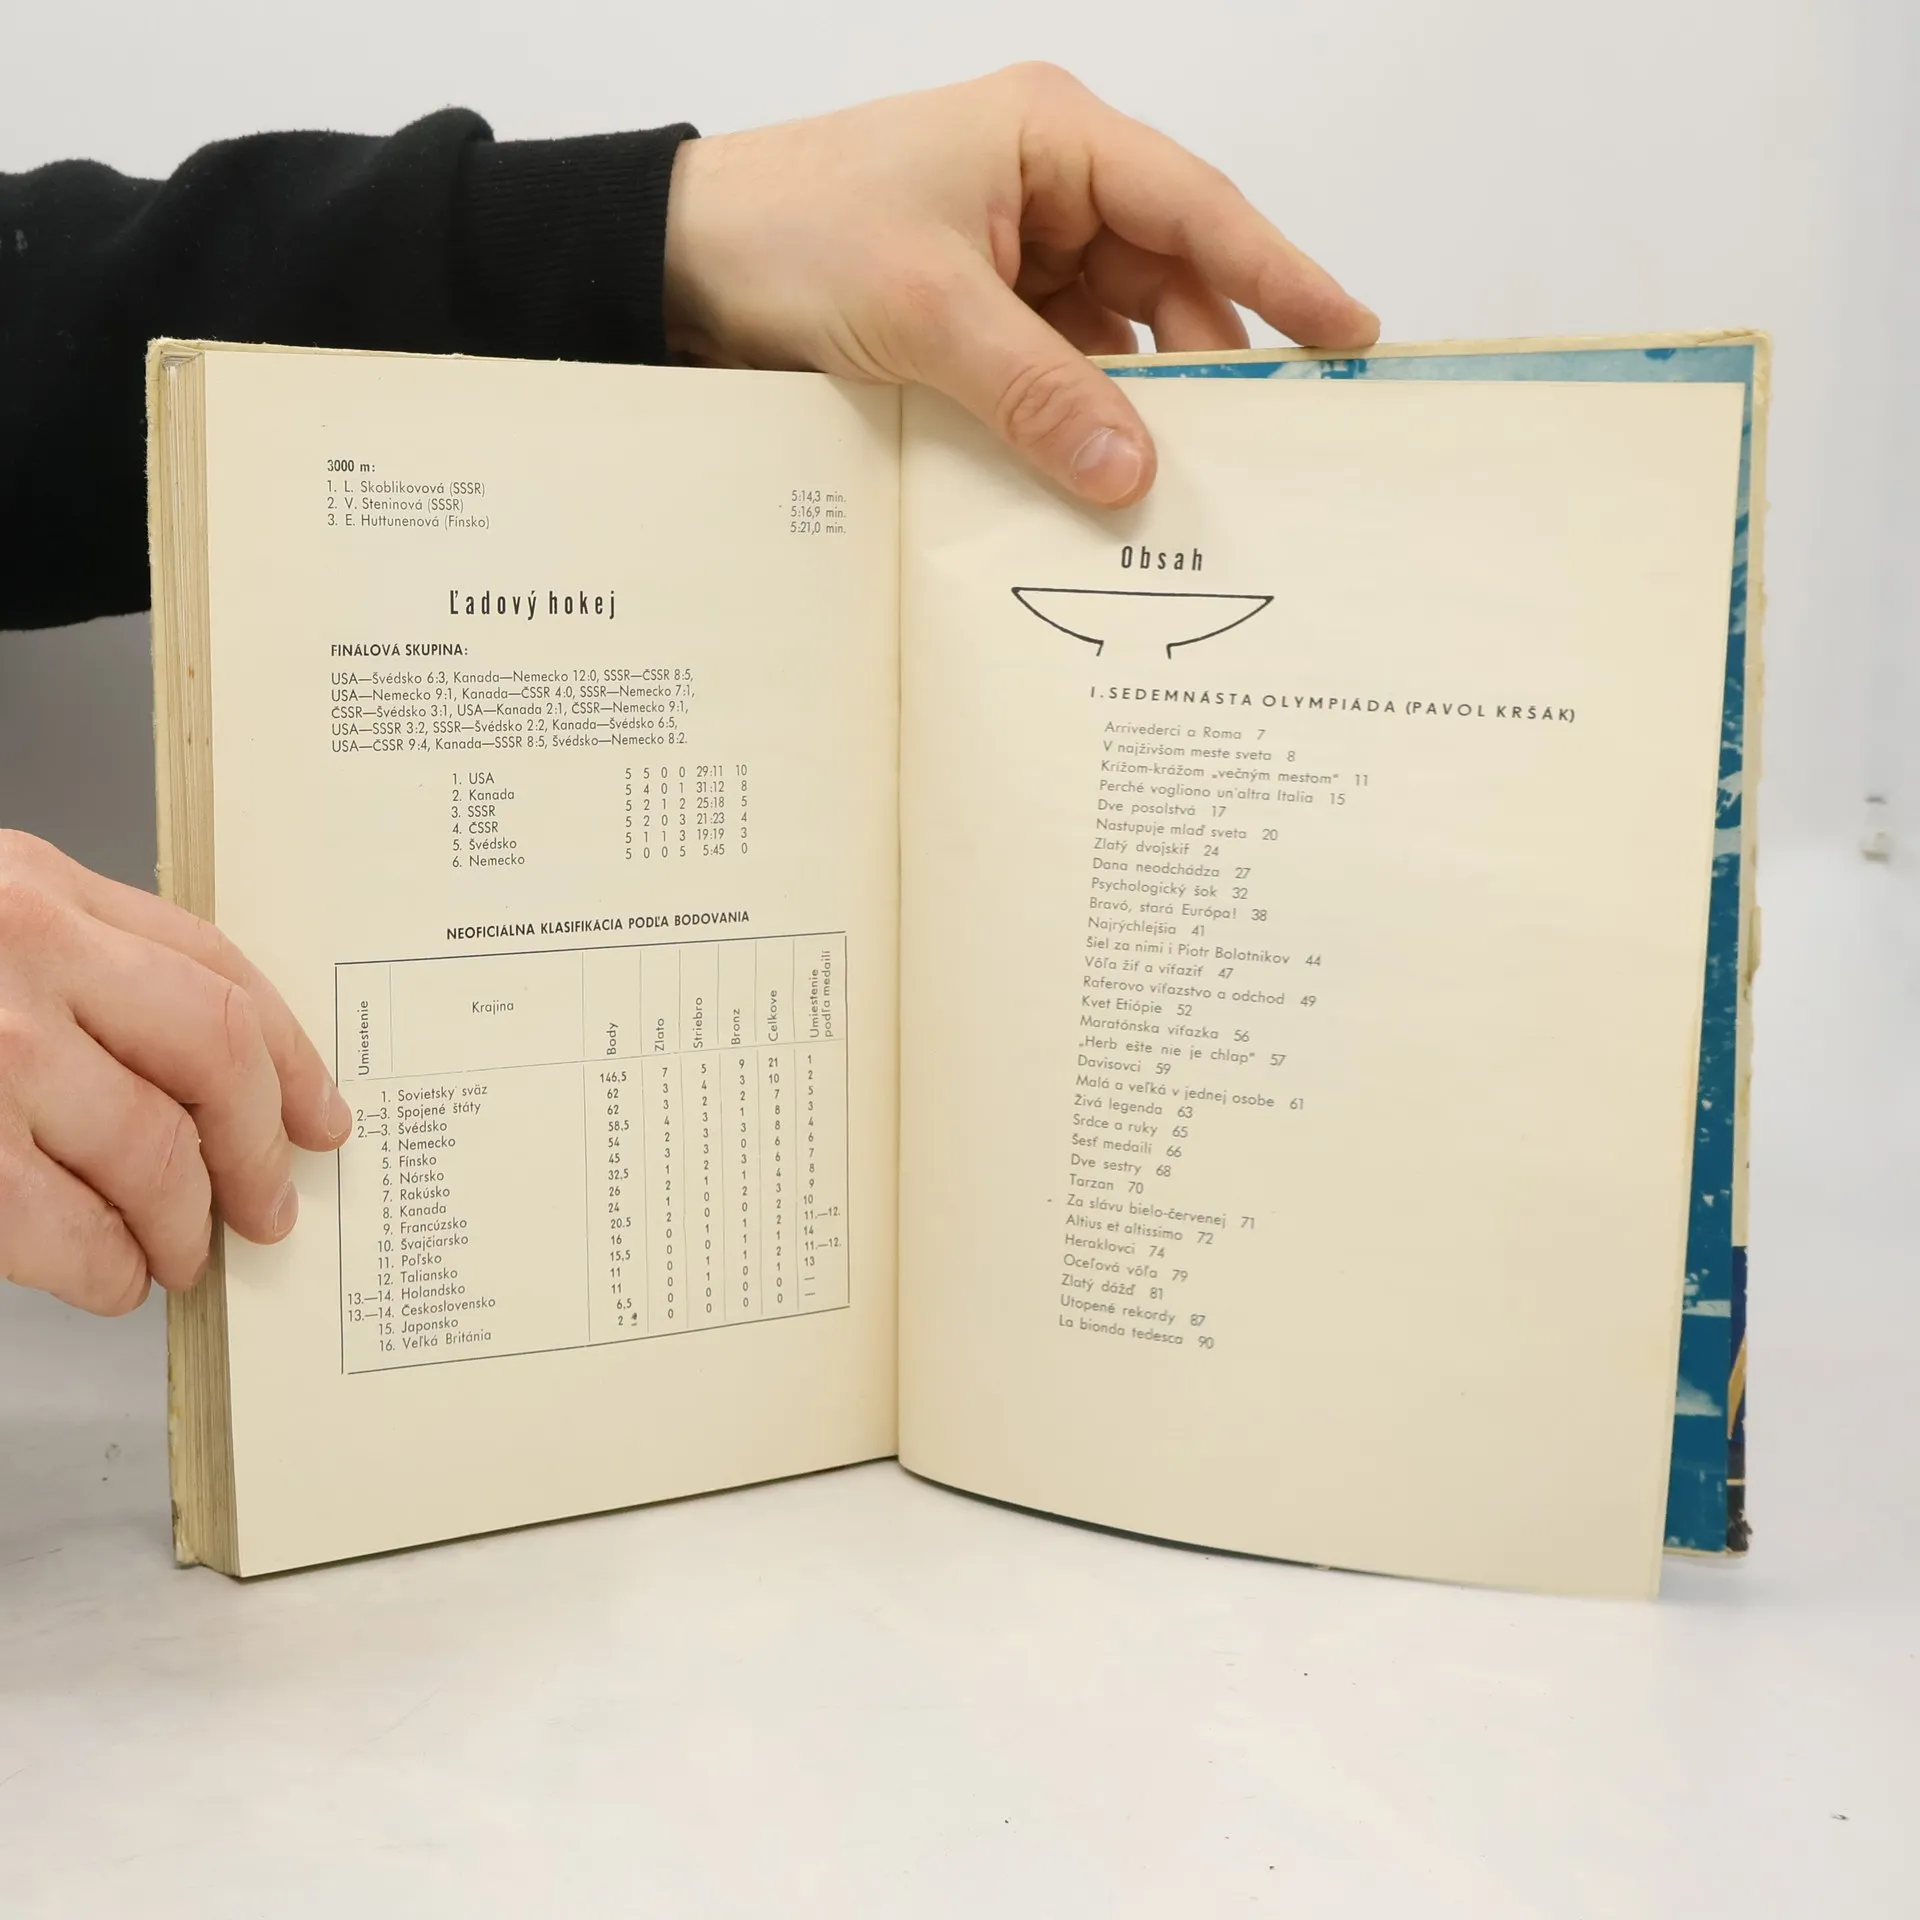 3000 m:
1. L. Skoblikovová (SSSR) 5:14,3 min.
2. V. Steninová (SSSR) 5:16,9 min.
3. E. Huttunenová (Fínsko) 5:21,0 min.
Ľadový hokej
FINÁLOVÁ SKUPINA:
USA—Švédsko 6:3, Kanada—Nemecko 12:0, SSSR—ČSSR 8:5,
USA—Nemecko 9:1, Kanada—ČSSR 4:0, SSSR—Nemecko 7:1,
ČSSR—Švédsko 3:1, USA—Kanada 2:1, ČSSR—Nemecko 9:1,
USA—SSSR 3:2, SSSR—Švédsko 2:2, Kanada—Švédsko 6:5,
USA—ČSSR 9:4, Kanada—SSSR 8:5, Švédsko—Nemecko 8:2.
1. USA 5 5 0 0 29:11 10
2. Kanada 5 4 0 1 31:12 8
3. SSSR 5 2 1 2 25:18 5
4. ČSSR 5 2 0 3 21:23 4
5. Švédsko 5 1 1 3 19:19 3
6. Nemecko 5 0 0 5 5:45 0
NEOFICIÁLNA KLASIFIKÁCIA PODĽA BODOVANIA
Umiestenie Krajina Body Zlato Striebro Bronz Celkove Umiestenie podľa medailí
1. Sovietsky sväz 146,5 7 5 9 21 1
2.—3. Spojené štáty 62 3 4 3 10 2
2.—3. Švédsko 62 3 2 2 7 5
4. Nemecko 58,5 4 3 1 8 3
5. Fínsko 54 2 3 3 8 4
6. Nórsko 45 3 3 0 6 6
7. Rakúsko 32,5 1 2 3 6 7
8. Kanada 26 2 1 1 4 8
9. Francúzsko 24 1 0 2 3 9
10. Švajčiarsko 20.5 2 0 0 2 10
11. Poľsko 16 0 1 1 2 11.—12.
12. Taliansko 15,5 0 0 1 1 14
13.—14. Holandsko 11 0 1 1 2 11.—12.
13.—14. Československo 11 0 1 0 1 13
15. Japonsko 6,5 0 0 0 0 —
16. Veľká Británia 2 0 0 0 0 —
Obsah
I. SEDEMNÁSTA OLYMPIÁDA (PAVOL KRŠÁK)
Arrivederci a Roma 7
V najživšom meste sveta 8
Krížom-krážom „večným mestom“ 11
Perché vogliono un'altra Italia 15
Dve posolstvá 17
Nastupuje mlaď sveta 20
Zlatý dvojskif 24
Dana neodchádza 27
Psychologický šok 32
Bravó, stará Európa! 38
Najrýchlejšia 41
Šiel za nimi i Piotr Bolotnikov 44
Vôľa žiť a víťaziť 47
Raferovo víťazstvo a odchod 49
Kvet Etiópie 52
Maratónska víťazka 56
„Herb ešte nie je chlap“ 57
Davisovci 59
Malá a veľká v jednej osobe 61
Živá legenda 63
Srdce a ruky 65
Šesť medailí 66
Dve sestry 68
Tarzan 70
Za slávu bielo-červenej 71
Altius et altissimo 72
Heraklovci 74
Oceľová vôľa 79
Zlatý dážď 81
Utopené rekordy 87
La bionda tedesca 90